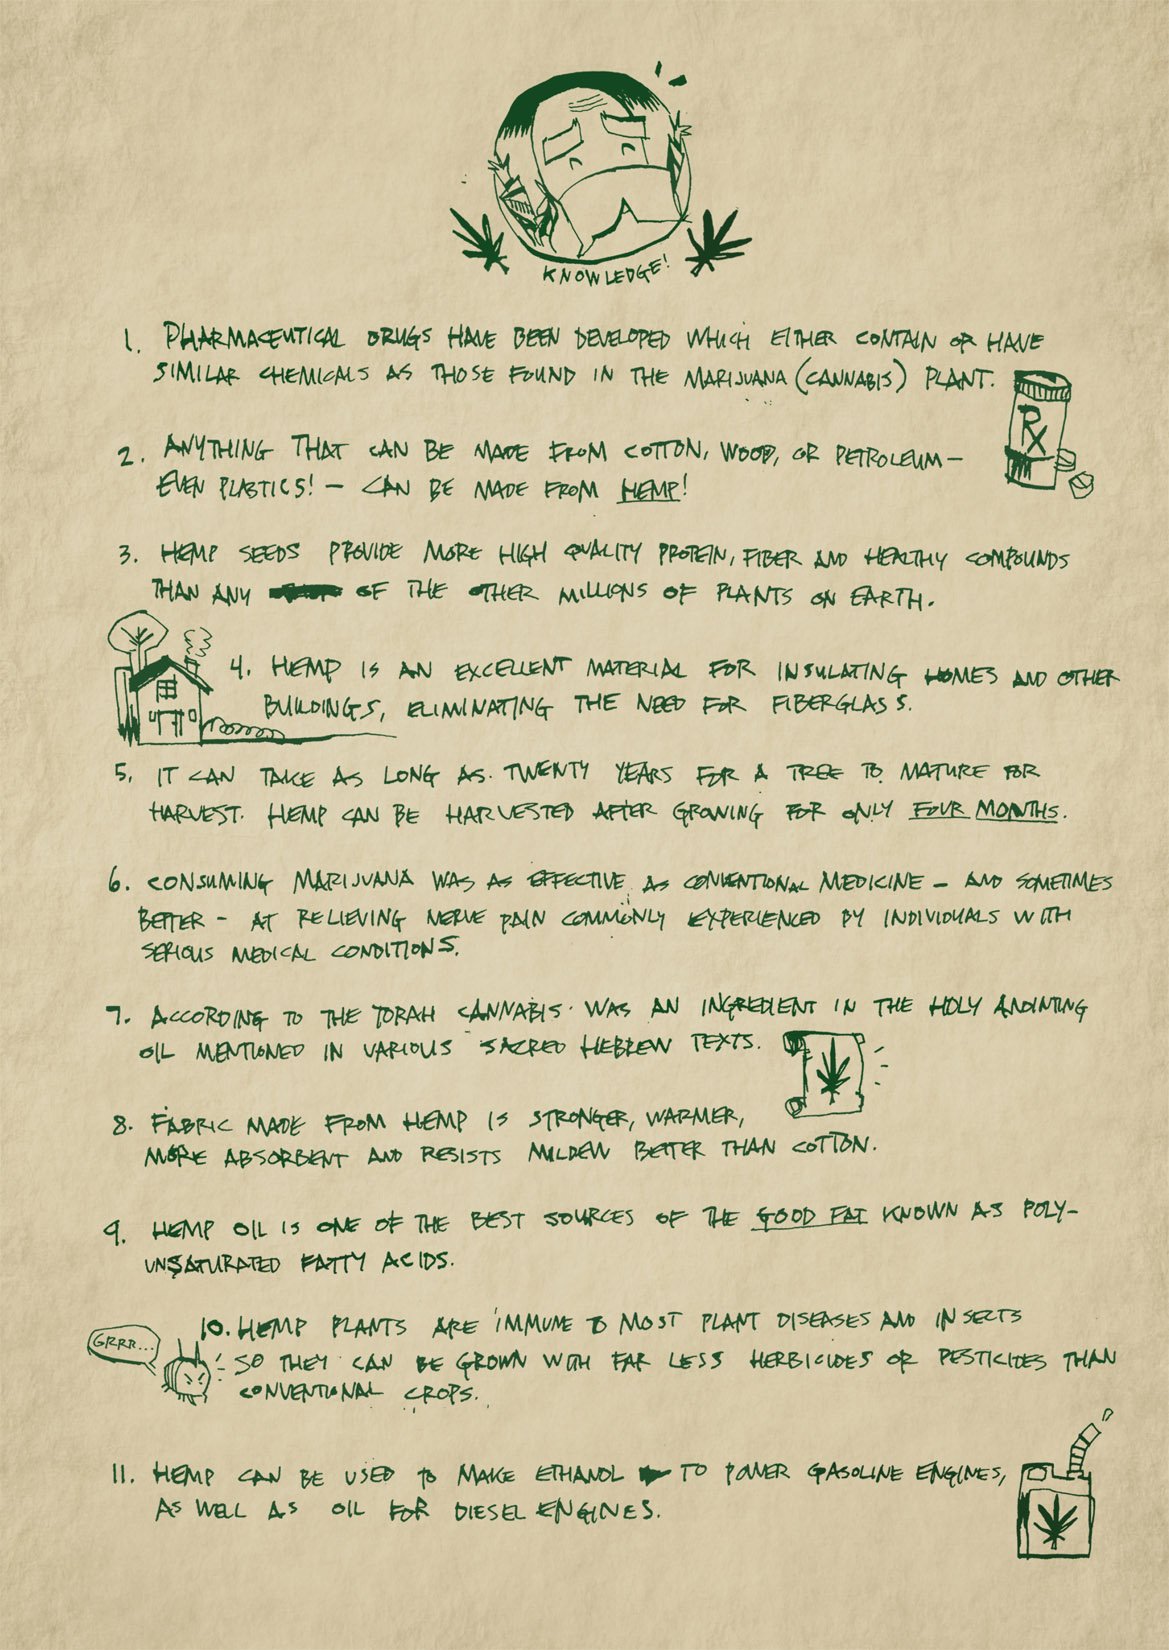 KNOWLEDGE!
1. PHARMACEUTICAL DRUGS HAVE BEEN DEVELOPED WHICH EITHER CONTAIN OR HAVE
SIMILAR CHEMICALS AS THOSE FOUND IN THE MARIJUANA (CANNABIS) PLANT.
RX
2. ANYTHING THAT CAN BE MADE FROM COTTON, WOOD, OR PETROLEUM—
EVEN PLASTICS! — CAN BE MADE FROM HEMP!
3. HEMP SEEDS PROVIDE MORE HIGH QUALITY PROTEIN, FIBER AND HEALTHY COMPOUNDS
THAN ANY OF THE OTHER MILLIONS OF PLANTS ON EARTH.
4. HEMP IS AN EXCELLENT MATERIAL FOR INSULATING HOMES AND OTHER
BUILDINGS, ELIMINATING THE NEED FOR FIBERGLASS.
5. IT CAN TAKE AS LONG AS TWENTY YEARS FOR A TREE TO MATURE FOR
HARVEST. HEMP CAN BE HARVESTED AFTER GROWING FOR ONLY FOUR MONTHS.
6. CONSUMING MARIJUANA WAS AS EFFECTIVE AS CONVENTIONAL MEDICINE — AND SOMETIMES
BETTER — AT RELIEVING NERVE PAIN COMMONLY EXPERIENCED BY INDIVIDUALS WITH
SERIOUS MEDICAL CONDITIONS.
7. ACCORDING TO THE TORAH CANNABIS WAS AN INGREDIENT IN THE HOLY ANOINTING
OIL MENTIONED IN VARIOUS SACRED HEBREW TEXTS.
8. FABRIC MADE FROM HEMP IS STRONGER, WARMER,
MORE ABSORBENT AND RESISTS MILDEW BETTER THAN COTTON.
9. HEMP OIL IS ONE OF THE BEST SOURCES OF THE GOOD FAT KNOWN AS POLY-
UNSATURATED FATTY ACIDS.
GRRR...
10. HEMP PLANTS ARE IMMUNE TO MOST PLANT DISEASES AND INSECTS
SO THEY CAN BE GROWN WITH FAR LESS HERBICIDES OR PESTICIDES THAN
CONVENTIONAL CROPS.
11. HEMP CAN BE USED TO MAKE ETHANOL TO POWER GASOLINE ENGINES,
AS WELL AS OIL FOR DIESEL ENGINES.